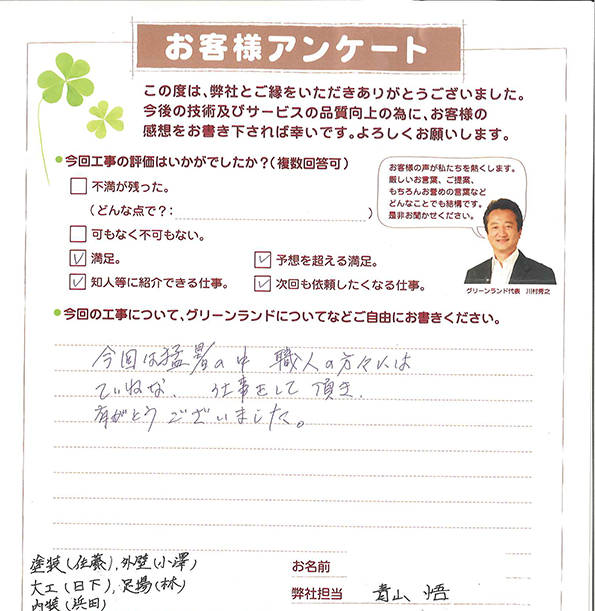 お客様アンケート
この度は、弊社とご縁をいただきありがとうございました。
今後の技術及びサービスの品質向上の為に、お客様の
感想をお書き下されば幸いです。よろしくお願いします。
●今回工事の評価はいかがでしたか?(複数回答可)
不満が残った。
(どんな点で?: )
可もなく不可もない。
満足。
予想を超える満足。
知人等に紹介できる仕事。
次回も依頼したくなる仕事。
お客様の声が私たちを熱くします。
厳しいお言葉、ご提案、
もちろんお誉めの言葉など
どんなことでも結構です。
是非お聞かせください。
グリーンランド代表 川村秀之
●今回の工事について、グリーンランドについてなどご自由にお書きください。
今回は猛暑の中 職人の方々には
ていねな、仕事をして頂き、
有がとうございました。
塗装(佐藤),外壁(小澤)
大工(日下),足場(林)
内装(浜田)
お名前
弊社担当 青山 悟